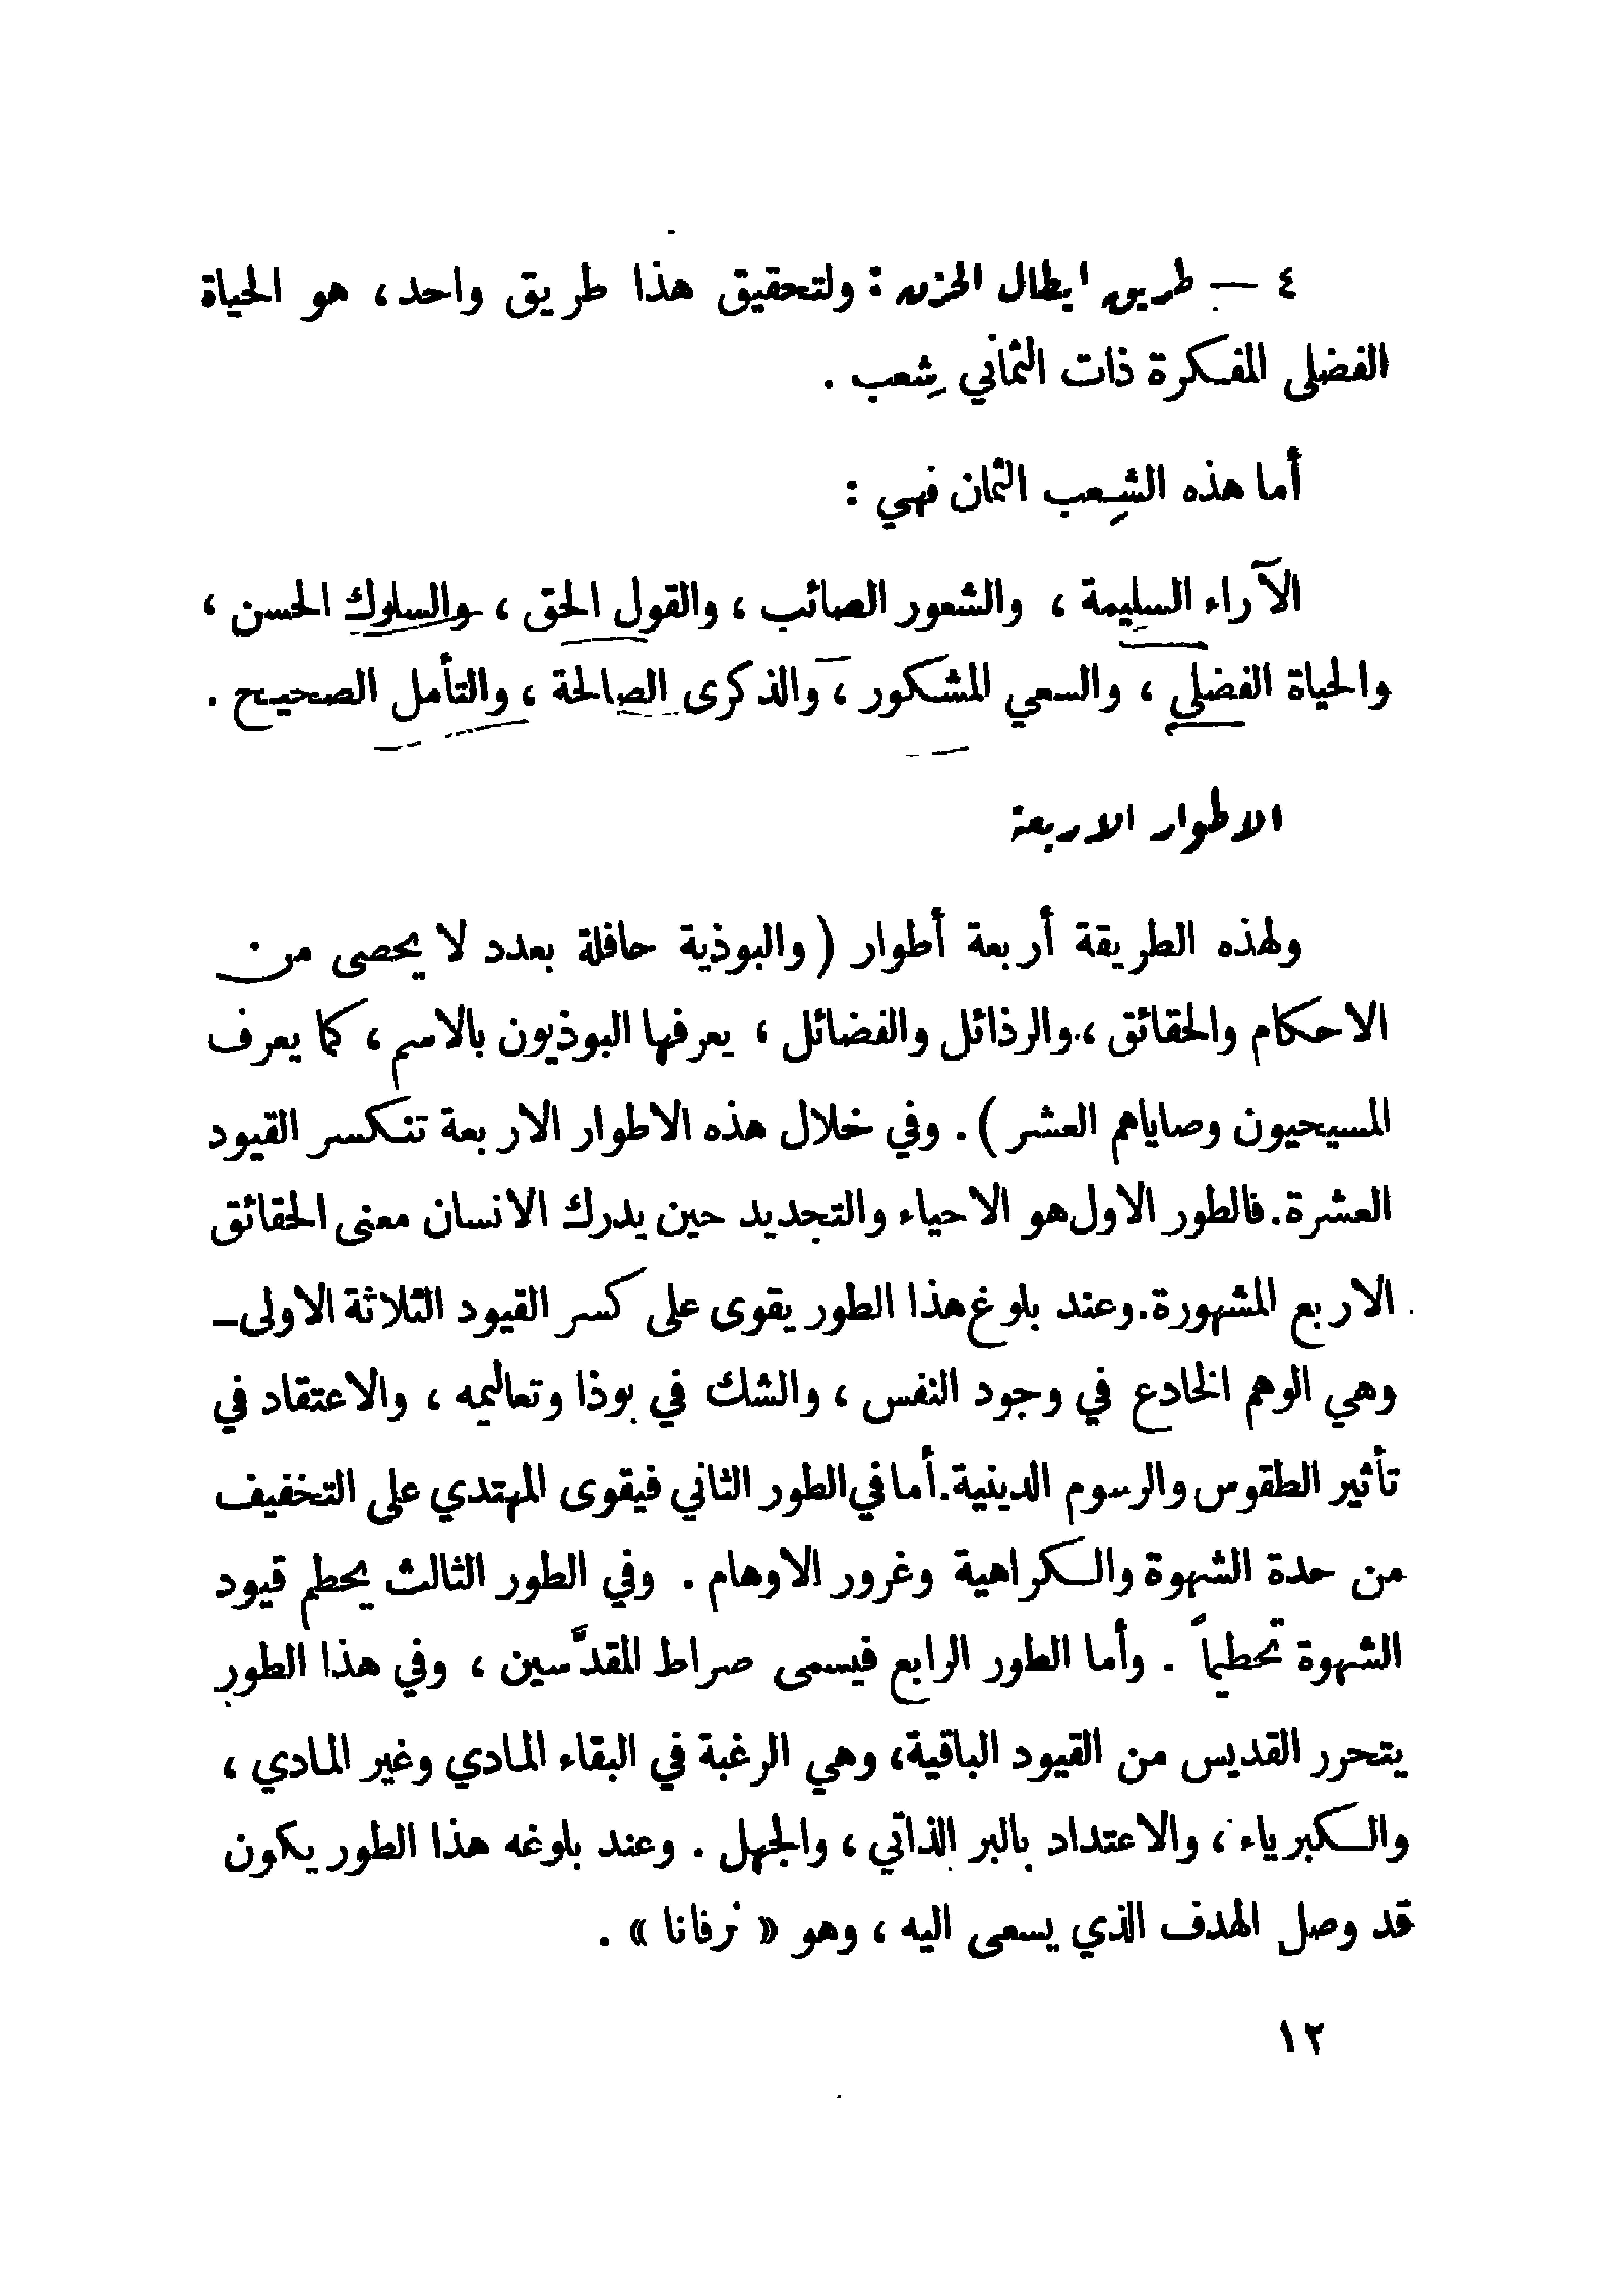 ٤ — طريق ابطال الحزن : ولتحقيق هذا طريق واحد ، هو الحياة
الفضلى المفكرة ذات الثماني شِعب .
أما هذه الشِعب الثمان فهي :
الآراء السليمة ، والشعور الصائب ، والقول الحق ، والسلوك الحسن ،
والحياة الفضلى ، والسعي المشكور ، والذكرى الصالحة ، والتأمل الصحيح .
الاطوار الاربعة
ولهذه الطريقة أربعة أطوار ( والبوذية حافلة بعدد لا يحصى من
الاحكام والحقائق ، والرذائل والفضائل ، يعرفها البوذيون بالاسم ، كما يعرف
المسيحيون وصاياهم العشر ) . وفي خلال هذه الاطوار الاربعة تنكسر القيود
العشرة . فالطور الاول هو الاحياء والتجديد حين يدرك الانسان معنى الحقائق
الاربع المشهورة . وعند بلوغ هذا الطور يقوى على كسر القيود الثلاثة الاولى —
وهي الوهم الخادع في وجود النفس ، والشك في بوذا وتعاليمه ، والاعتقاد في
تأثير الطقوس والرسوم الدينية . أما في الطور الثاني فيقوى المهتدي على التخفيف
من حدة الشهوة والكراهية وغرور الاوهام . وفي الطور الثالث يحطم قيود
الشهوة تحطيماً . وأما الطور الرابع فيسمى صراط المقدَّسين ، وفي هذا الطور
يتحرر القديس من القيود الباقية ، وهي الرغبة في البقاء المادي وغير المادي ،
والكبرياء ، والاعتداد بالبر الذاتي ، والجهل . وعند بلوغه هذا الطور يكون
قد وصل الهدف الذي يسعى اليه ، وهو « نرفانا » .
١٢